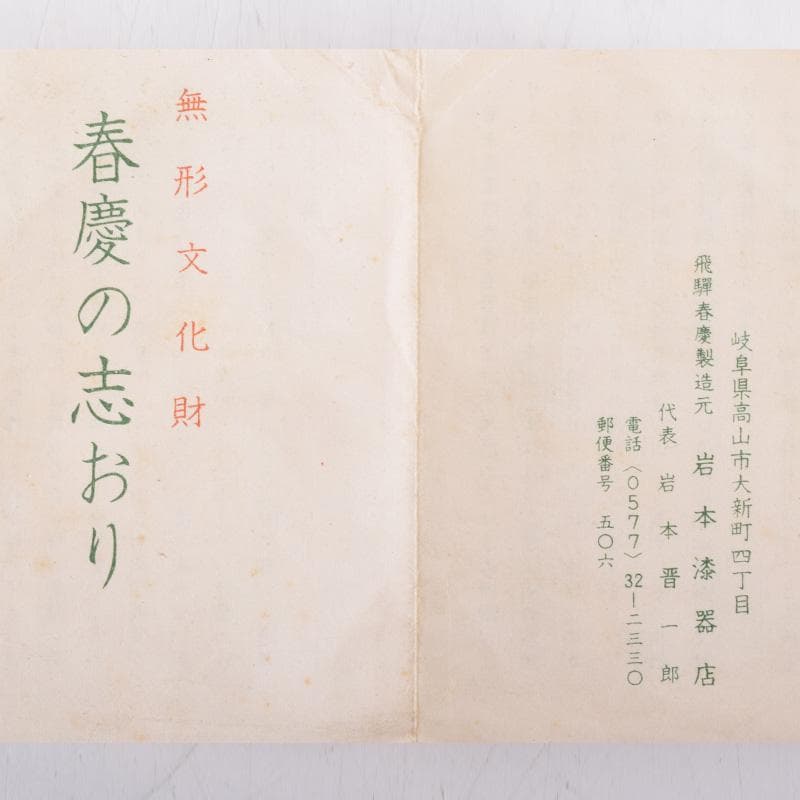 無形文化財
春慶の志おり
岐阜県高山市大新町四丁目
飛驒春慶製造元 岩本漆器店
代表 岩本晋一郎
電話〈0577〉32-二三三〇
郵便番号 五〇六